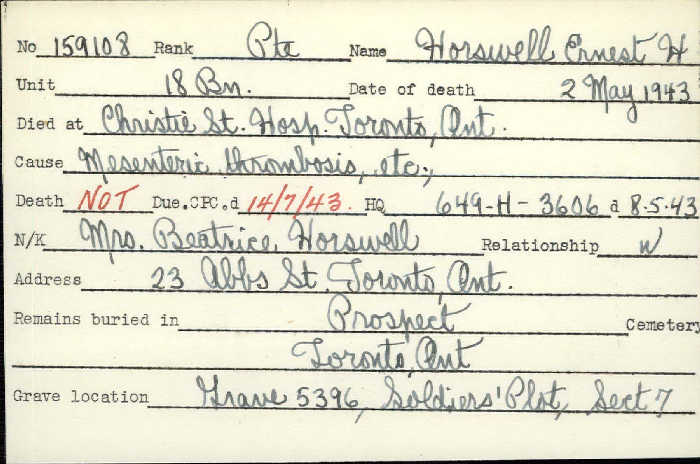 No 159108 Rank Pte Name Horswell Ernest H
Unit 18 Bn. Date of death 2 May 1943
Died at Christie St. Hosp. Toronto, Ont.
Cause Mesenteric thrombosis, etc.,
Death NOT Due.CPC.d 14/7/43. HQ 649-H-3606 d 8.5.43
N/K Mrs. Beatrice Horswell Relationship W
Address 23 Abbs St. Toronto, Ont.
Remains buried in Prospect Cemetery
Toronto, Ont
Grave location Grave 5396, Soldiers' Plot, Sect 7